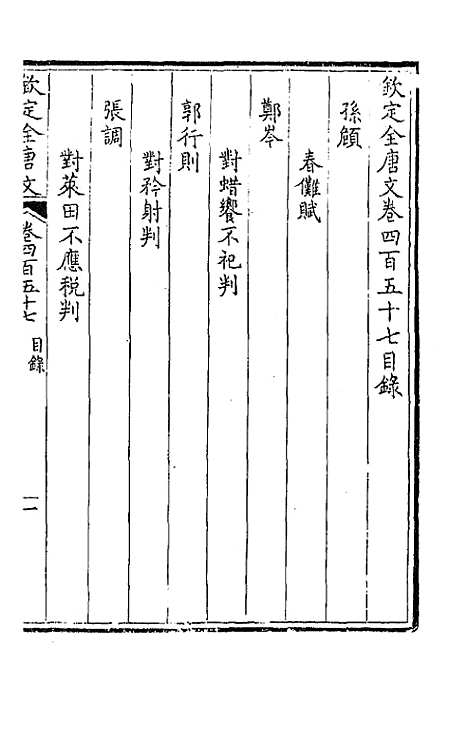 欽定全唐文卷四百五十七目錄
孫頠
春儺賦
鄭岑
對蜡饗不祀判
郭行則
對矜射判
張調
對萊田不應税判
欽定全唐文
卷四百五十七
目錄
一